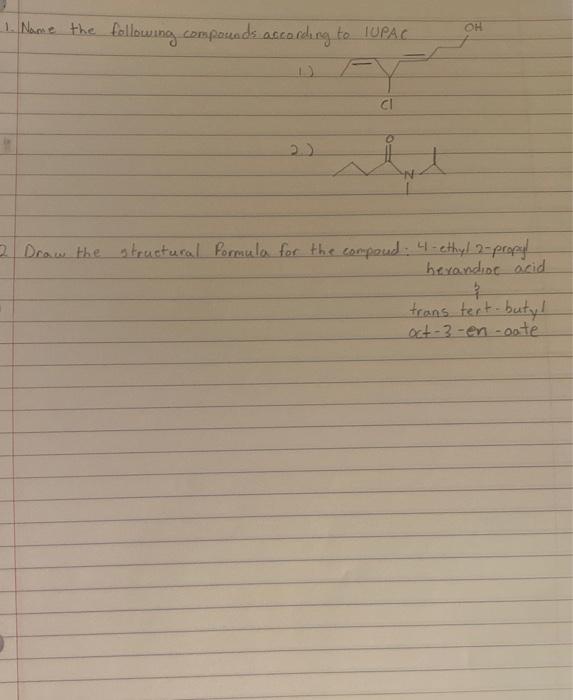 1. Name the following compounds according to IUPAC
OH
1.)
Cl
2.)
O
N
2 Draw the structural formula for the compoud: 4-ethyl 2-propyl
hexandioc acid
&
trans tert-butyl
oct-3-en-oate